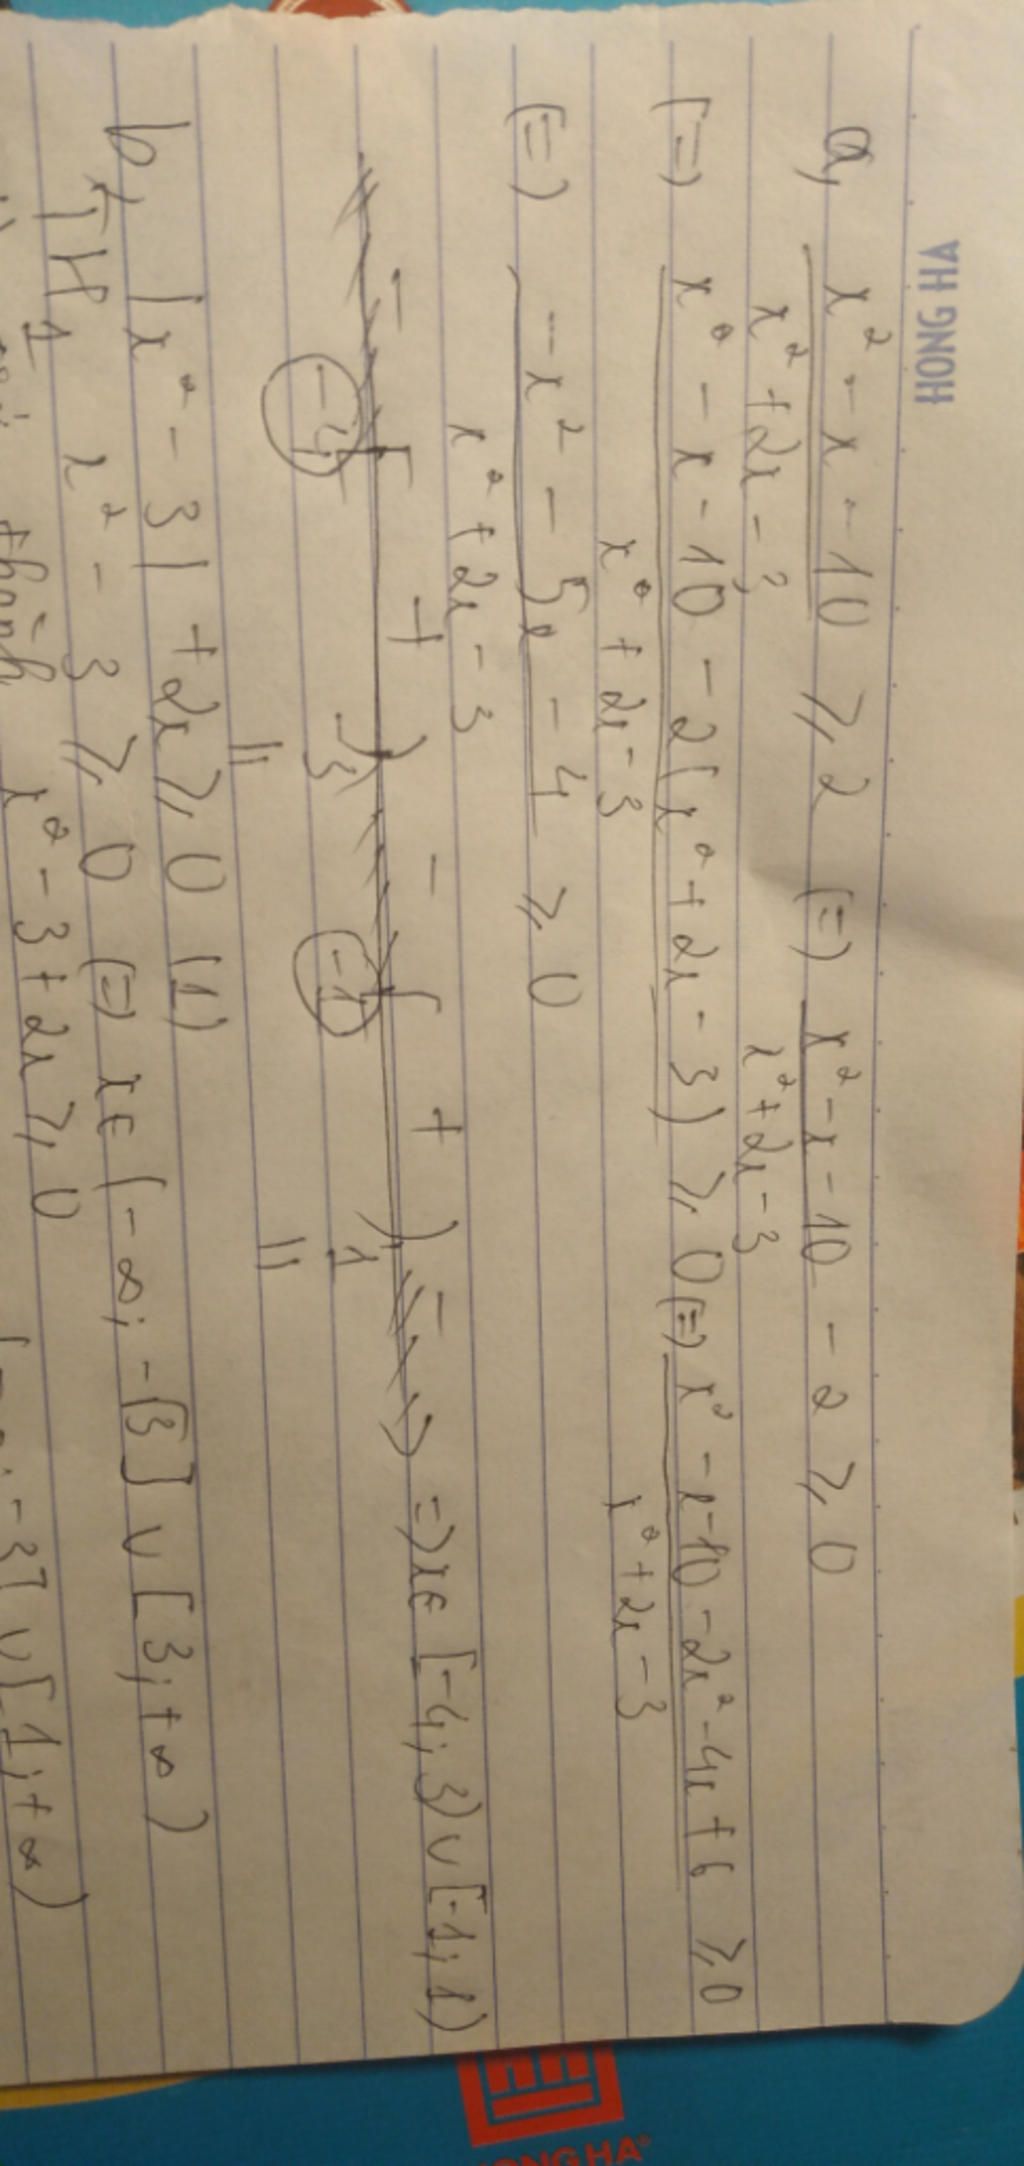 HONG HA
a, x² - x - 10 ⩾ 2 (=) x² - x - 10 - 2 ⩾ 0
x² + 2x - 3 x² + 2x - 3
(=) x² - x - 10 - 2(x² + 2x - 3) ⩾ 0 (=) x² - x - 10 - 2x² - 4x + 6 ⩾ 0
x² + 2x - 3 x² + 2x - 3
(=) -x² - 5x - 4 ⩾ 0
x² + 2x - 3
- + - + - => x ∈ [-4; 3) ∪ [-1; 1)
-4 -3 -1 1
|| ||
b, |x² - 3| + 2x ⩾ 0 (1)
TH1 x² - 3 ⩾ 0 (=) x ∈ (-∞; -√3] ∪ [3; +∞)
thành x² - 3 + 2x ⩾ 0
-3] ∪ [1; +∞)
HONG HA